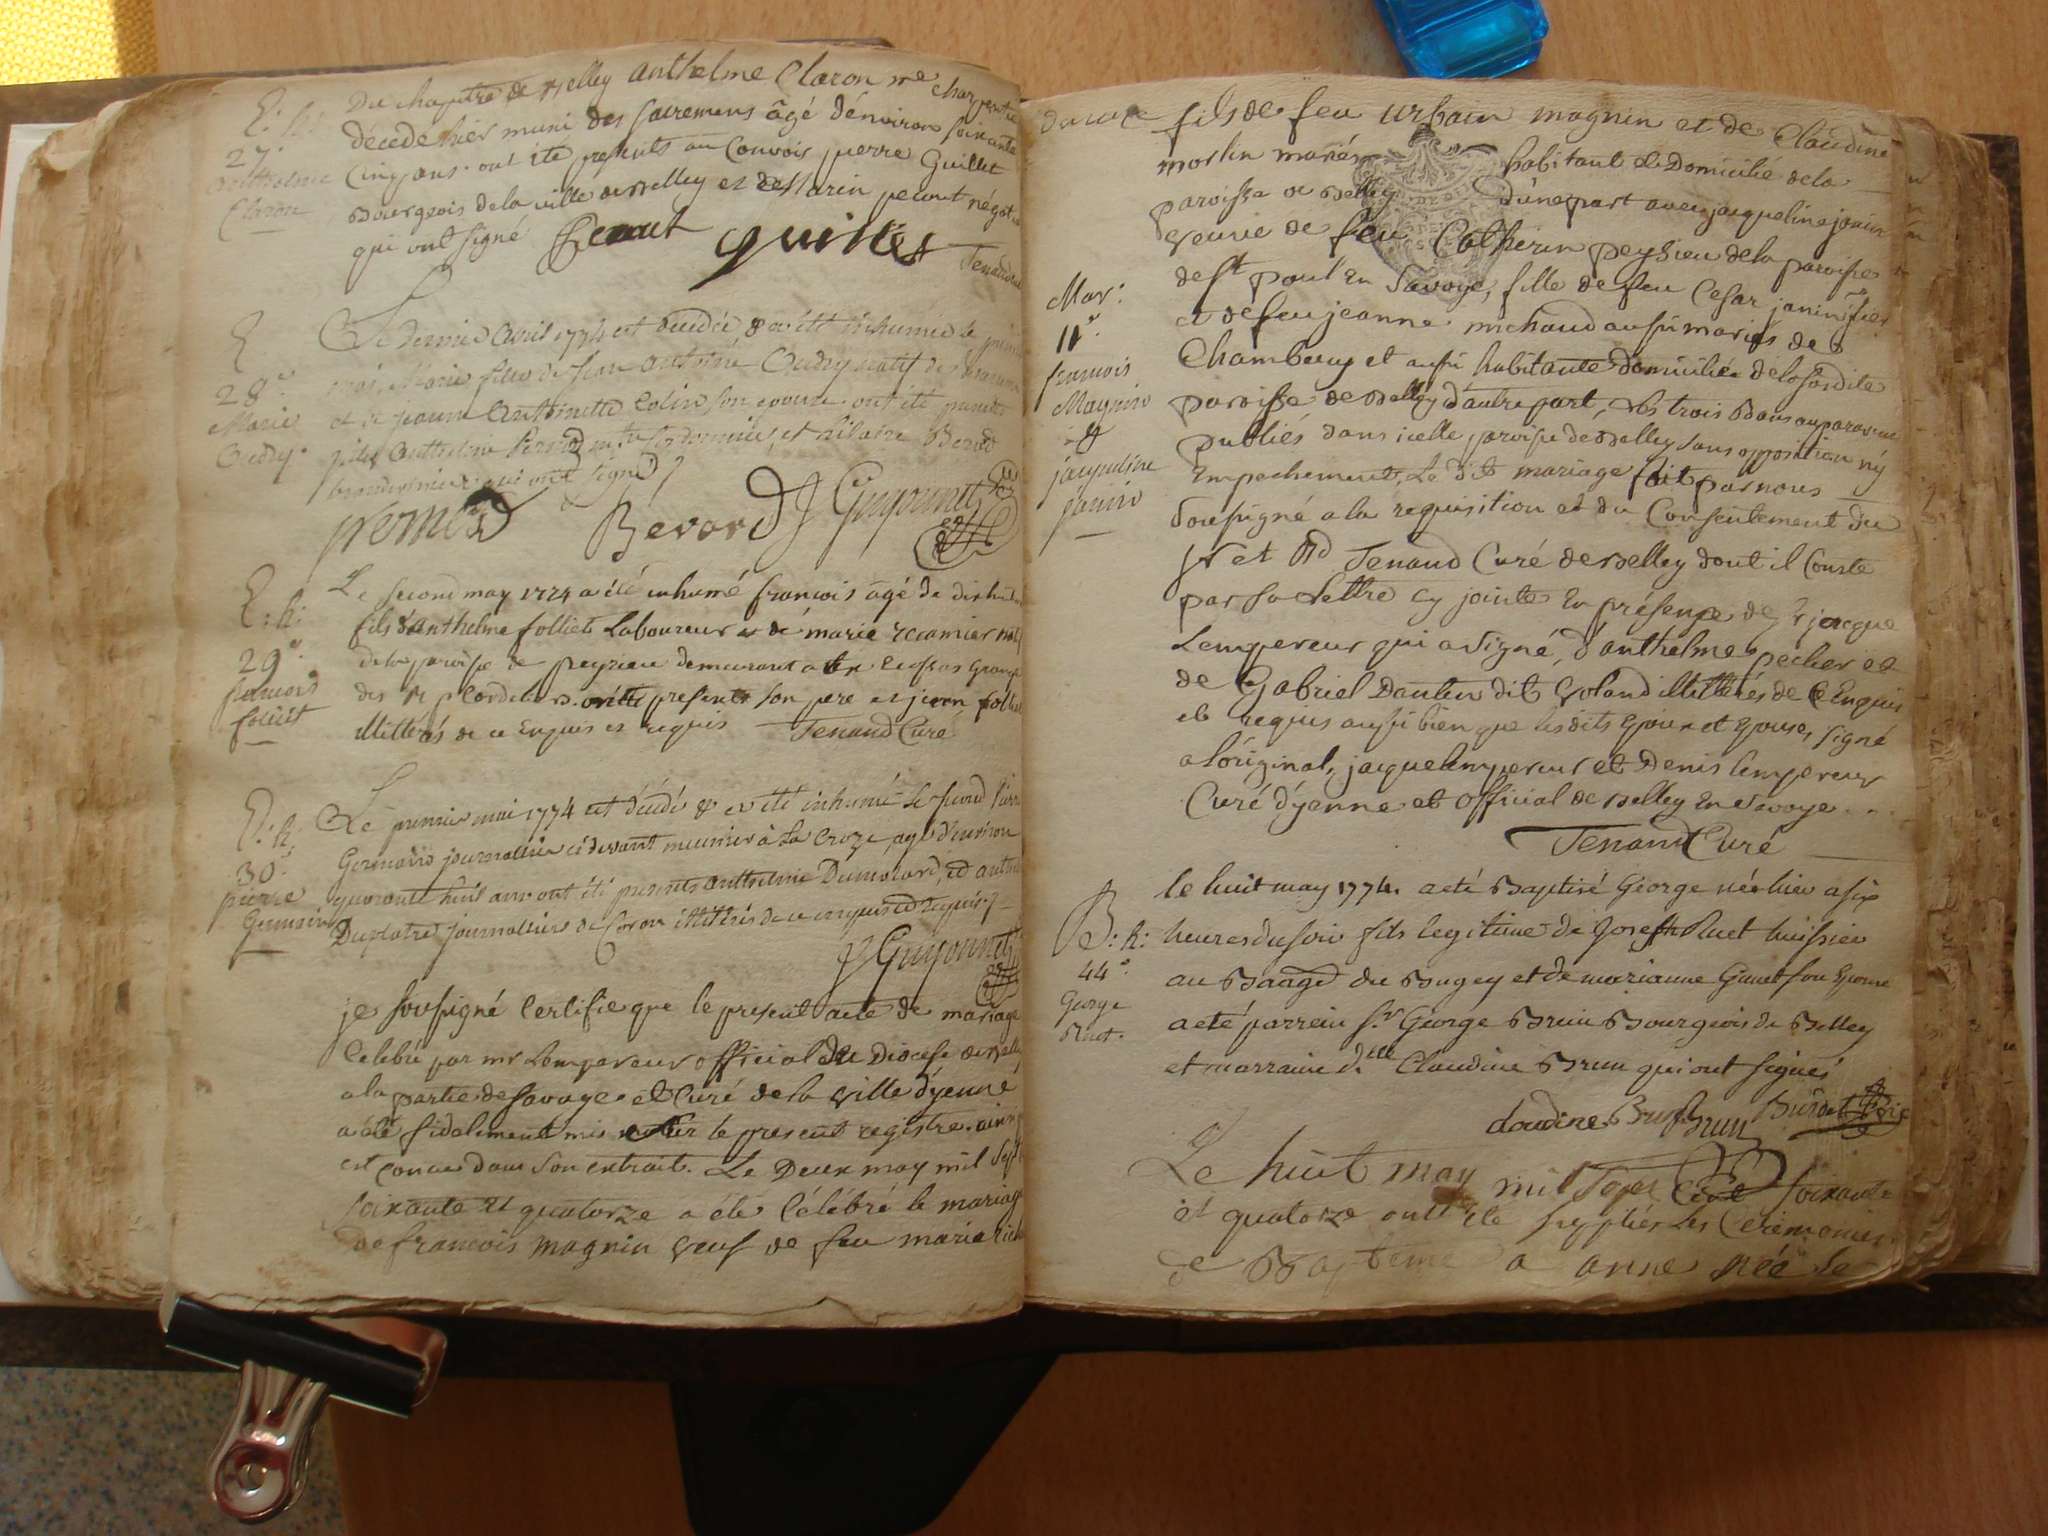 Du chapitre de Belley Anthelme Claron me charpentie
décédé hier muni des sacremens âgé d'environ soixante
cinq ans. ont été presents au Convois pierre Guillet
Bourgeois de la ville de Belley et Marin pecout négot
qui ont signé Pecout Guillet
Tenand
E: h:
27.e
anthelme
Claron
Le dernier Avril 1774 est décédée & a été inhumée le premier
mai, Marie fille de Jean antoine Cudry natif de
et de jeanne Antoinette Colin son epouse ont été presents
Anthelme Pernod mtre Cordonnier, et hilaire Berard
qui ont signé
Berard J Guyonnet
E
28.e
Marie
Cudry.
Le second may 1774 a été inhumé françois âgé de dix huit
fils d'Anthelme folliet Laboureur et de marie recamier
de la paroise de peyzieu demeurant a
des R p Cordeliers. presents son pere et jean folliet
illittérés de ce Enquis et requis Tenand Curé
E: h:
29.e
francois
folliet
Le premier mai 1774 est décédé & a été inhumé le second Pierre
Germain journallier cidevant meunier à La Croze, agé d'environ
quarante huit ans ont été presents anthelme Dumolard, et antoi
Duplatre journallier de illitérés de ce enquis et requis
J Guyonnet
E: h:
30.e
pierre
Germain
je soussigné Certifie que le present acte de mariage
Celebré par mr Lempereur official du Diocese de Belley
a la partie de Savoye et Curé de la Ville d'yenne
a été fidelement mis sur le present registre. ainsi
est Conçu dans son extrait. Le Deux may mil sept
soixante et quatorze a été Célébré le mariage
de francois magnin veuf de feu marie
fils de feu urbain magnin et de Claudine
morlin mariés habitant et Domicilié de la
paroisse de Belley d'une part avec jacqueline janin
veuve de feu Catherin peysieu de la paroisse
de St paul en Savoye, fille de feu Cesar janin
et de feu jeanne michaud aussi mariés de
Chambery et aussi habitante domiciliée de la susdite
paroisse de Belley d'autre part, les trois Bans auparavant
publiés dans icelle paroise de Belley sans opposition ny
Empechement, Le dit mariage fait par nous
soussigné a la requisition et du Consentement du
Sr et Rd Tenand Curé de Belley dont il Conste
par sa Lettre cy jointe En présence de Sr jacque
Lempereur qui a signé, d'anthelme pecher et
de Gabriel Dantin dit Roland illittérés de ce Enquis
et requis aussi bien que lesdits Epoux et Epouse, signé
a l'original, jacque lempereur et Denis lempereur
Curé d'yenne et official de Belley En Savoye.
Tenand Curé
Mar:
11.e
francois
Magnin
&
jacqueline
janin
le huit may 1774. a eté Baptisé George né hier a six
heures du soir fils legitime de Joseph Ruet huissier
au Baage du Bugey et de marianne Ginet son Epouse
a eté parrein Sr George Brun Bourgeois de Belley
et marraine d.lle Claudine Brun qui ont signés
claudine Brun Brun
B: h:
44.e
George
Ruet.
Le huit may mil sept Cent soixante
et quatorze ont été supplées les Cérémonies
de Bapteme a anne née le